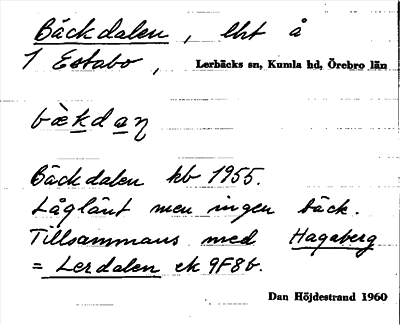 Bäckdalen, lht å
1 Estabo, Lerbäcks sn, Kumla hd, Örebro län
bèkdaṇ
Bäckdalen kb 1955.
Låglänt men ingen bäck.
Tillsammans med Hagaberg
= Lerdalen ek 9F8b.
Dan Höjdestrand 1960